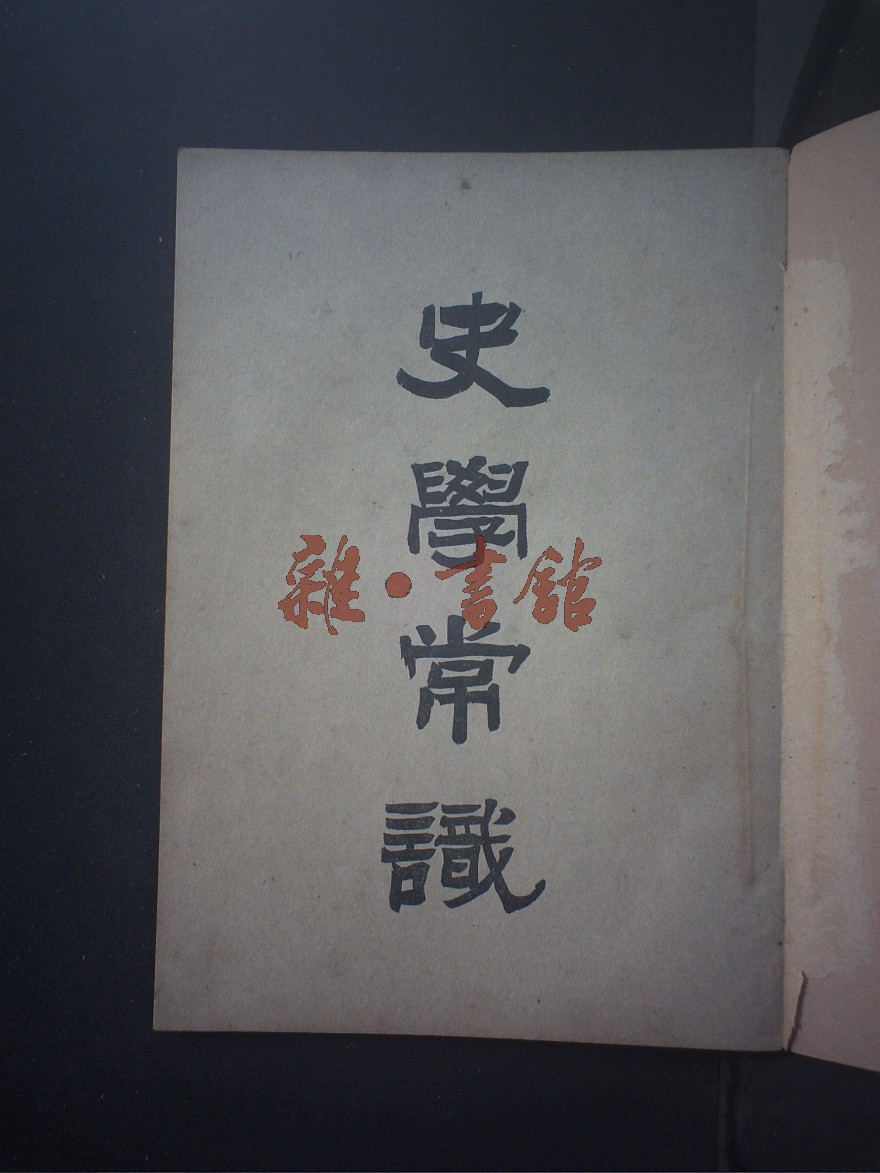 史學常識
雜·書館